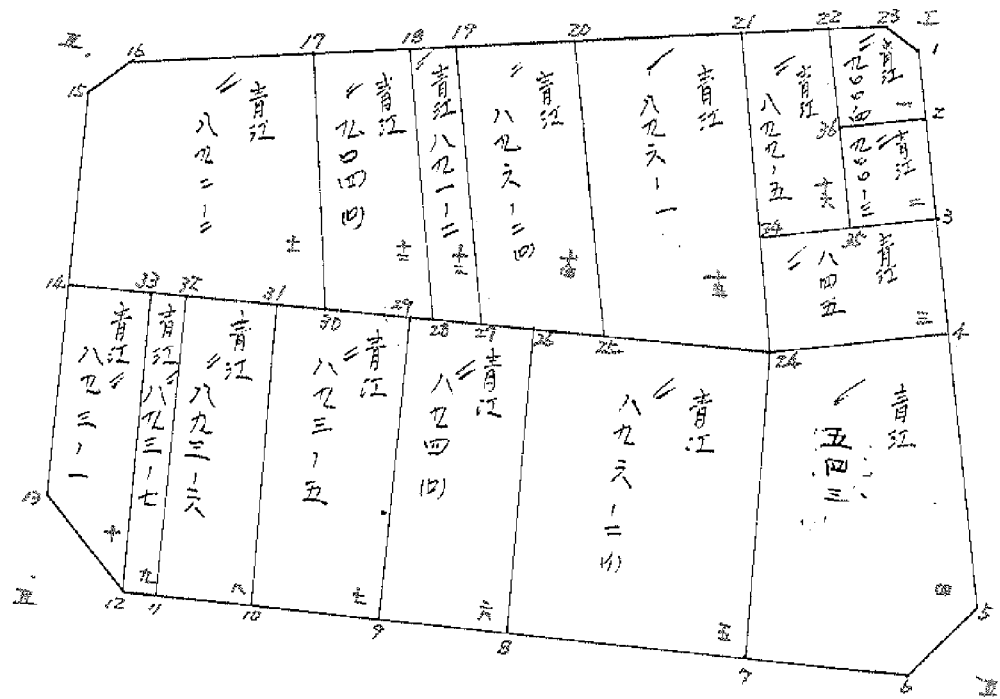 Ⅳ.
16
17
18
19
20
21
22
23
Ⅰ
1
15
青江
八九二ノ二
十一
青江
九〇四(四)
十二
青江
八九一ノ二
十三
青江
八九六ノ二(四)
十四
青江
八九六ノ一
十五
青江
八九九ノ五
十六
36
青江
一
2
青江
九〇〇ノ三
二
3
34
35
青江
八四五
三
4
14
33
32
31
30
29
28
27
26
25
24
青江
八九三ノ一
十
青江
八九三ノ七
九
青江
八九三ノ六
八
青江
八九三ノ五
七
青江
八九四(四)
六
青江
八九六ノ二
五
青江
五四三
四
13
Ⅲ
12
11
10
9
8
7
6
5
Ⅱ